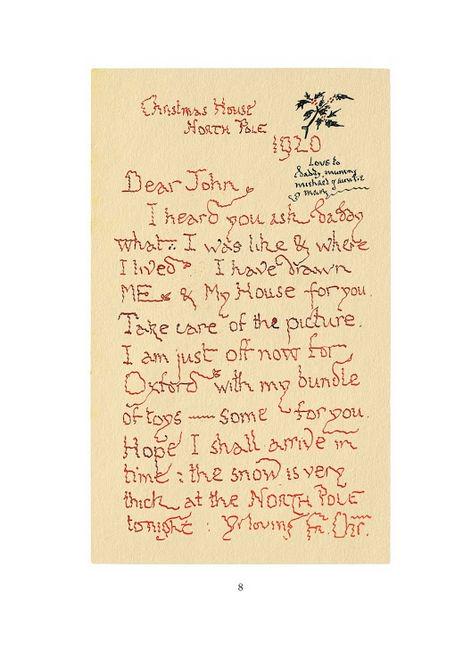 Christmas House
NORTH POLE
1920
Love to
daddy, mummy
michael & auntie
mary
Dear John
I heard you ask daddy
what I was like & where
I lived. I have drawn
ME & My House for you.
Take care of the picture.
I am just off now for
Oxford with my bundle
of toys — some for you.
Hope I shall arrive in
time : the snow is very
thick at the NORTH POLE
tonight : Yr loving Fr. Chr.
8